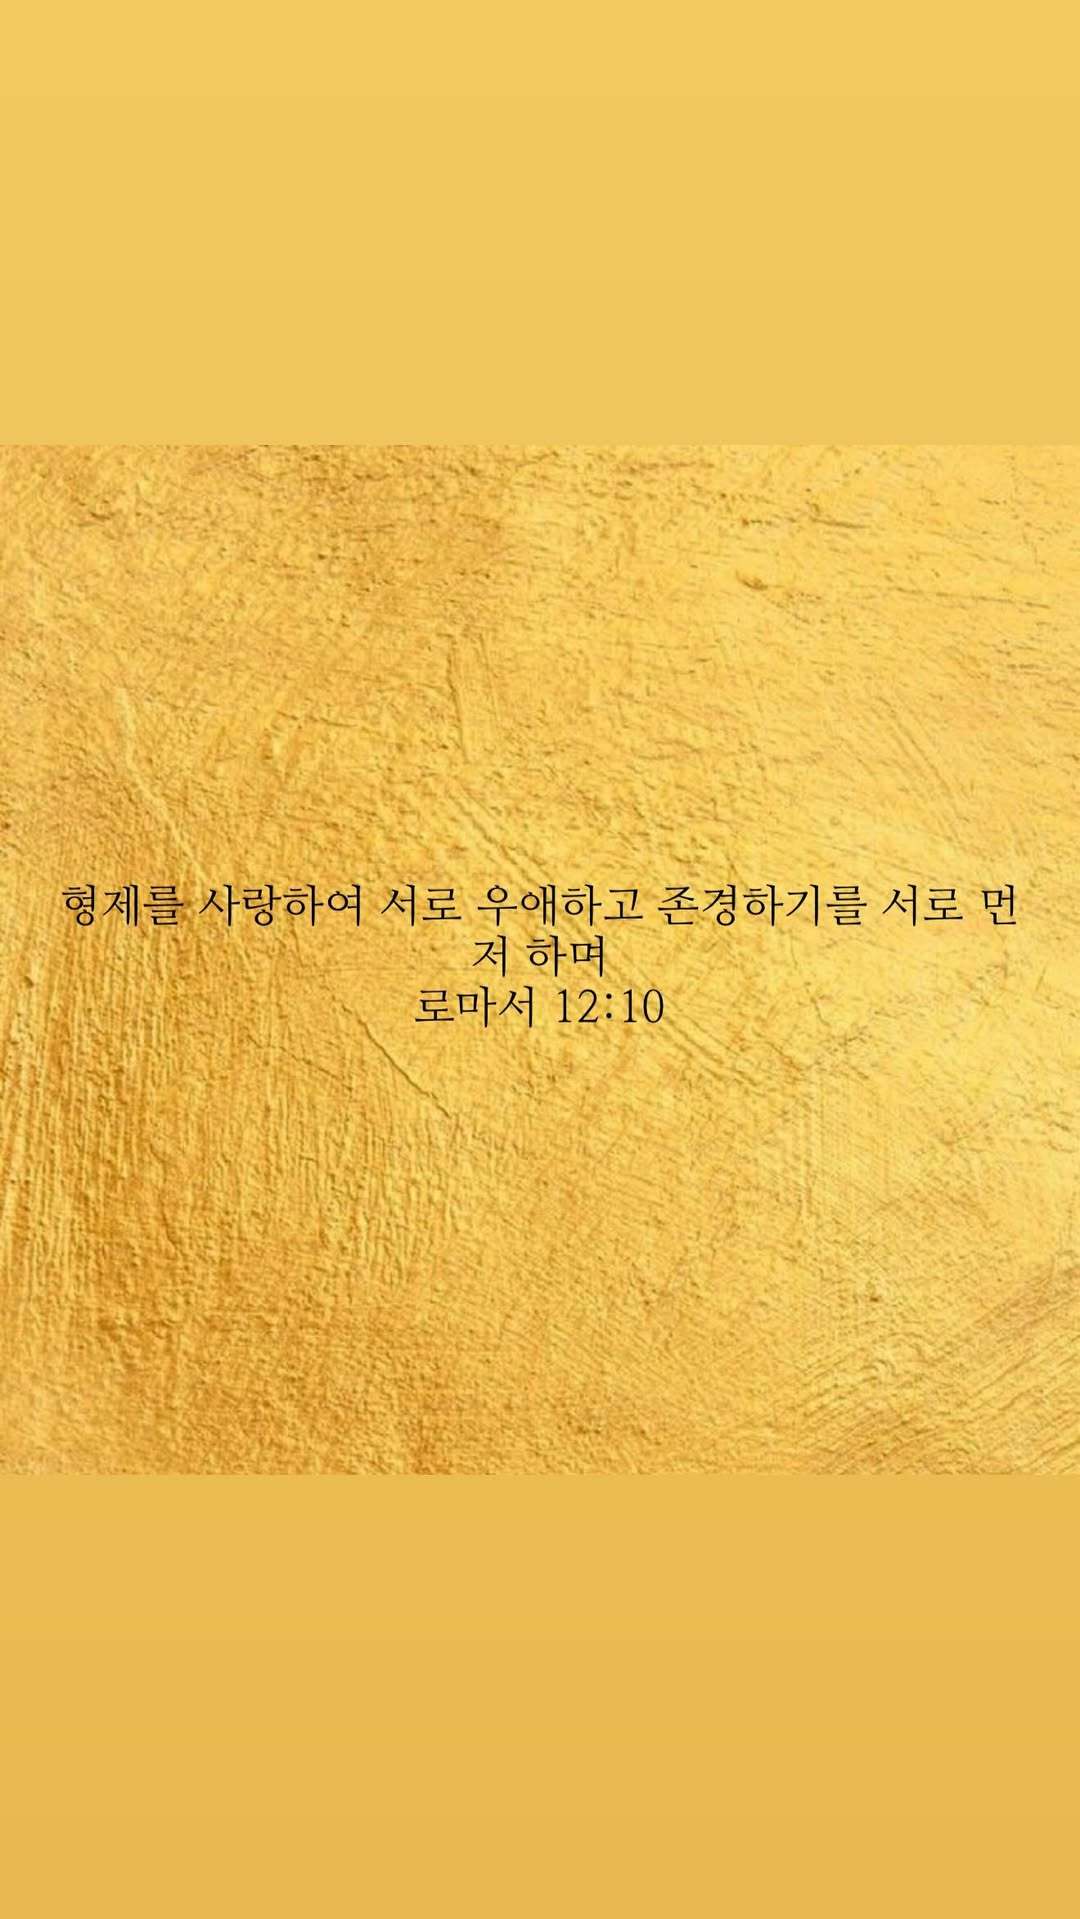 형제를 사랑하여 서로 우애하고 존경하기를 서로 먼
저 하며
로마서 12:10